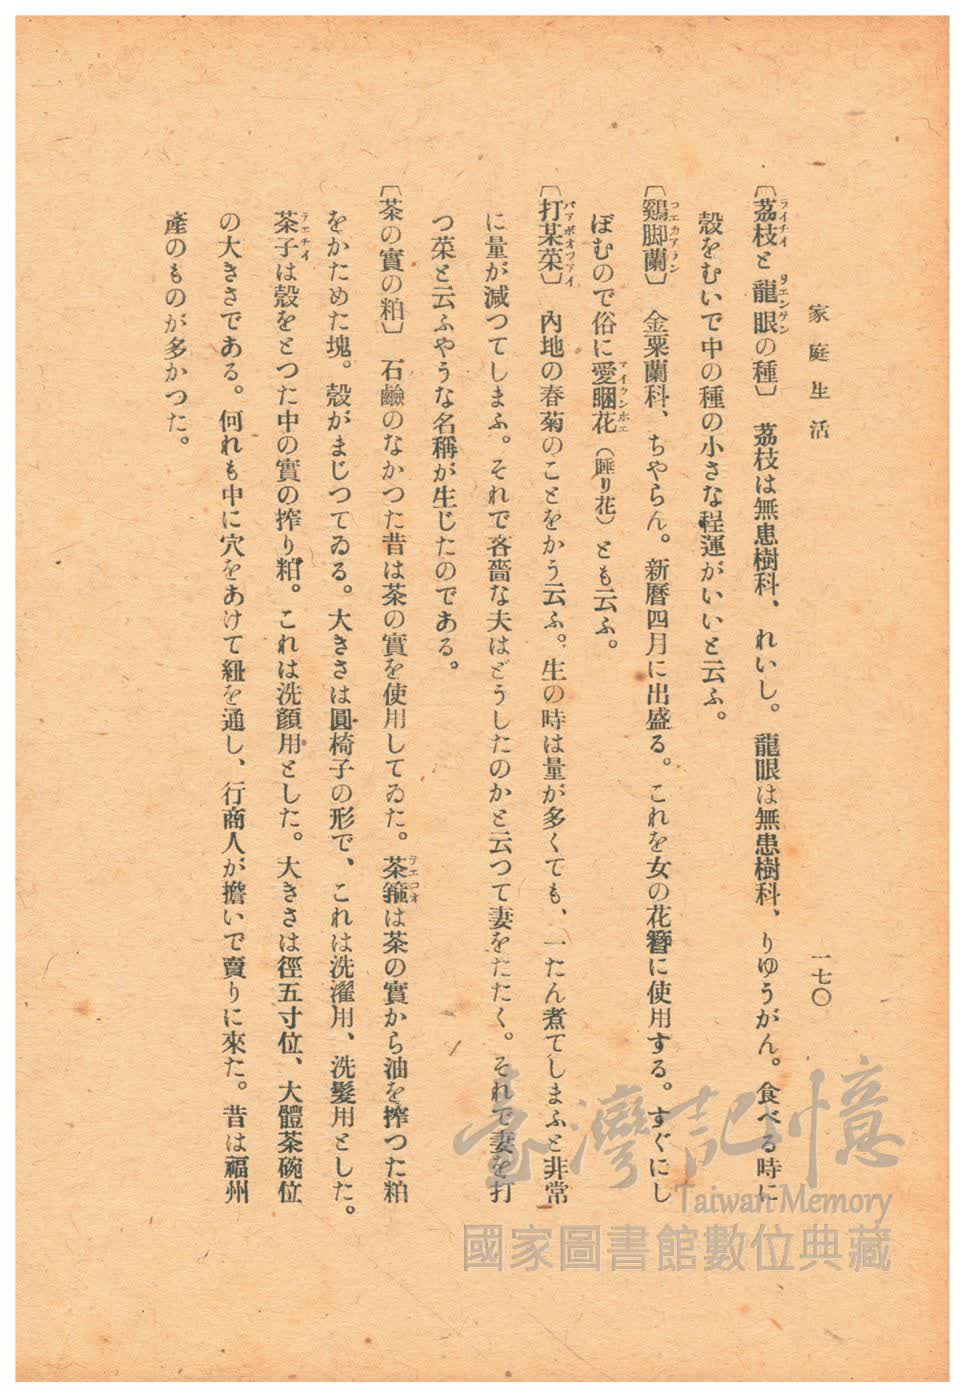 家庭生活
一七〇
〔茘枝と龍眼の種〕　茘枝は無患樹科、れいし。龍眼は無患樹科、りゆうがん。食べる時に
ライチイ
リエンゲン
殼をむいで中の種の小さな程運がいいと云ふ。
〔鷄脚蘭〕　金粟蘭科、ちやらん。新曆四月に出盛る。これを女の花簪に使用する。すぐにし
コエカアラン
ぼむので俗に愛睏花（睡り花）とも云ふ。
アイクンホエ
〔打某菜〕　內地の春菊のことをかう云ふ。生の時は量が多くても、一たん煮てしまふと非常
パアボオツアイ
に量が減つてしまふ。それで吝嗇な夫はどうしたのかと云つて妻をたたく。それで妻を打
つ菜と云ふやうな名稱が生じたのである。
〔茶の實の粕〕　石鹼のなかつた昔は茶の實を使用してゐた。茶箍は茶の實から油を搾つた粕
テエコオ
をかためた塊。殼がまじつてゐる。大きさは圓椅子の形で、これは洗濯用、洗髮用とした。
茶子は殼をとつた中の實の搾り粕。これは洗顏用とした。大きさは徑五寸位、大體茶碗位
テエチイ
の大きさである。何れも中に穴をあけて紐を通し、行商人が擔いで賣りに來た。昔は福州
產のものが多かつた。
臺灣記憶
Taiwan Memory
國家圖書館數位典藏